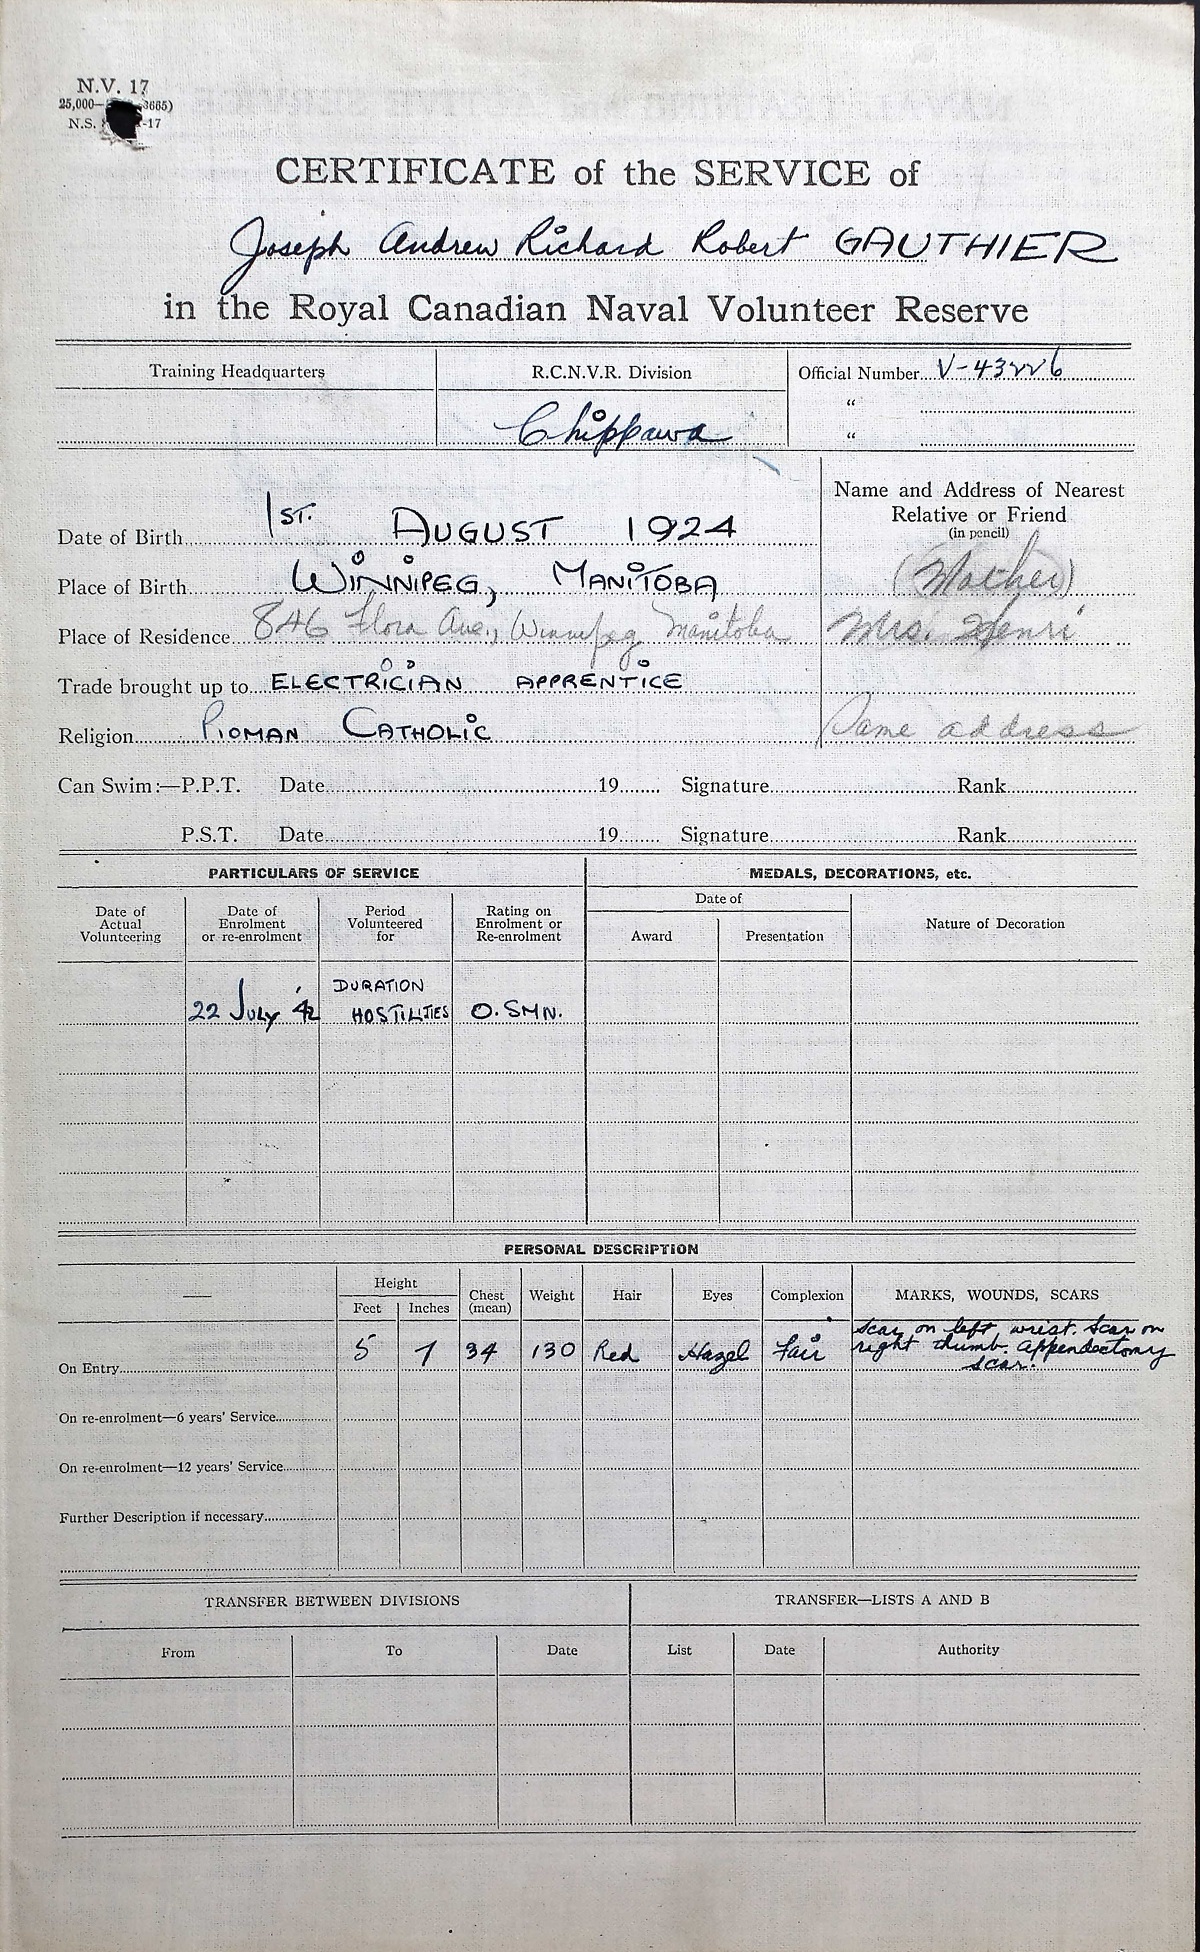 N.V. 17
25,000— 3665)
N.S. -17
CERTIFICATE of the SERVICE of
Joseph Andrew Richard Robert GAUTHIER
in the Royal Canadian Naval Volunteer Reserve
Training Headquarters R.C.N.V.R. Division Official Number V-43226
Chippawa "
"
Name and Address of Nearest
Relative or Friend
(in pencil)
Date of Birth 1ST. AUGUST 1924
Place of Birth WINNIPEG, MANITOBA (Mother)
Place of Residence 846 Flora Ave., Winnipeg Manitoba Mrs. Henri
Trade brought up to ELECTRICIAN APPRENTICE
Religion ROMAN CATHOLIC Same address
Can Swim:—P.P.T. Date 19 Signature Rank
P.S.T. Date 19 Signature Rank
PARTICULARS OF SERVICE MEDALS, DECORATIONS, etc.
Date of Actual Volunteering Date of Enrolment or re-enrolment Period Volunteered for Rating on Enrolment or Re-enrolment Date of Nature of Decoration
Award Presentation
22 JULY '42 DURATION HOSTILITIES O. SMN.
PERSONAL DESCRIPTION
— Height Chest (mean) Weight Hair Eyes Complexion MARKS, WOUNDS, SCARS
Feet Inches
On Entry 5 7 34 130 Red Hazel Fair Scar on left wrist. Scar on
right thumb. appendectomy
scar.
On re-enrolment—6 years' Service
On re-enrolment—12 years' Service
Further Description if necessary
TRANSFER BETWEEN DIVISIONS TRANSFER—LISTS A AND B
From To Date List Date Authority